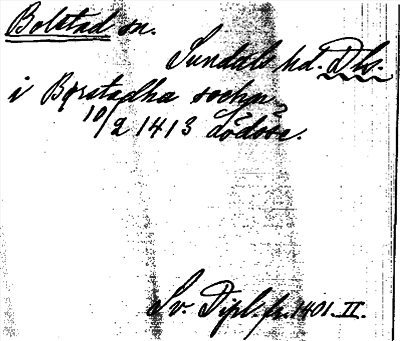 Bolstad sn.
Sundals hd. Dls.
i Børstadha sochn
10/2 1413 Lödöse.
Sv. Dipl. fr. 1401. II.